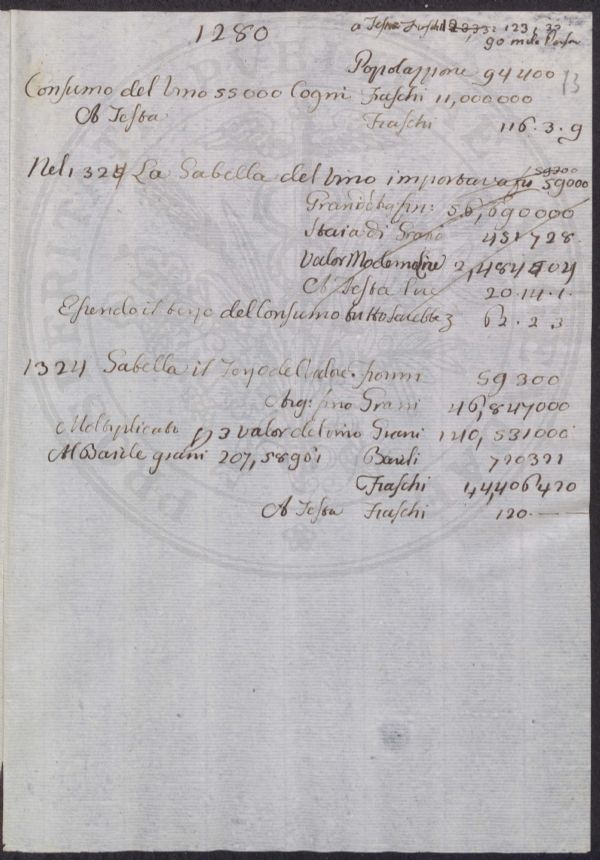 1280
a Testa Fiaschi 123. 22
90 mila Persone
13
Popolazzione 94400
Consumo del Vino 55000 Cogni Fiaschi 11,000000
A Testa Fiaschi 116.3.9
Nel 1324 La Gabella del Vino importava fn 59000
59300
Grani d'Arg. fin: 56,690000
Staia di Grano 431728
Valor Moderno Lire 2,484404
A Testa Lire 20.14.1.
Essendo il terzo del Consumo tutto sarebbe 62.2.3
1324 Gabella il Terzo del Valore fiorini 59300
Arg: fino Grani 46,847000
Moltiplicato p 3 valor del vino Grani 140,531000
Al Barile grani 207,58901 Barili 720321
Fiaschi 14,406420
A Testa Fiaschi 120.—